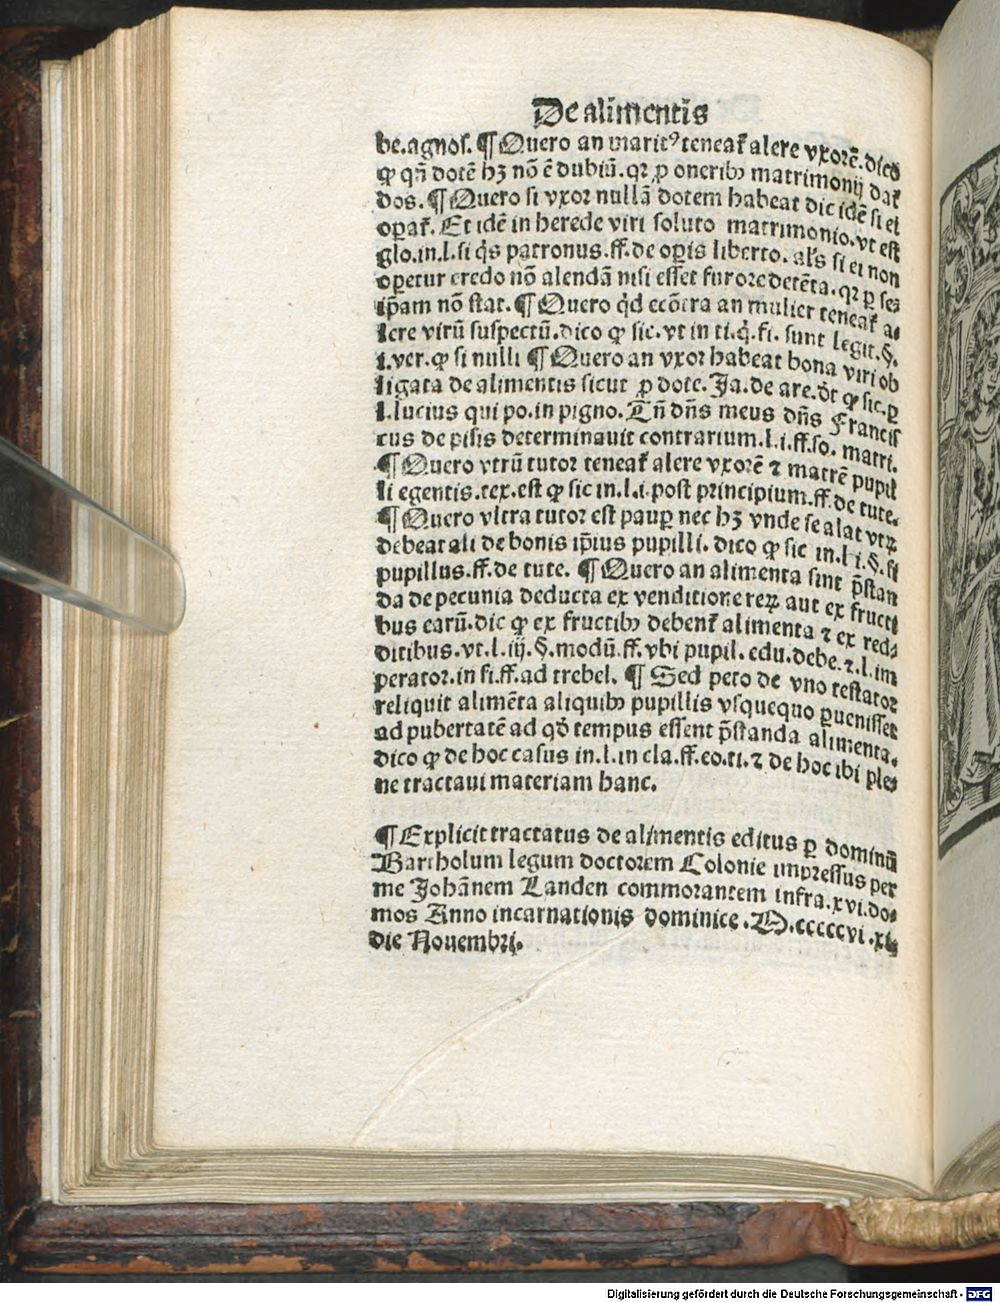 De alimentis
be.agnos. ¶ Quero an maritꝰ teneat᷑ alere vxorē.dico
ꝙ qn̄ dotē hꝫ nō ē dubiū.qꝛ ꝓ oneribꝰ matrimonij dat᷑
dos. ¶ Quero si vxor nullā dotem habeat dic idē si ei
oꝑat᷑. Et idē in herede viri soluto matrimonio.vt est
glo.in.l.si q̇s patronus.ff.de oꝑis liberto. al's si ei non
oꝑetur credo nō alendā nisi esset furore detēta.qꝛ ꝑ se⸗
ip̄am nō stat. ¶ Quero q̇d ecōtra an mulier teneat᷑ a⸗
lere virū suspectū.dico ꝙ sic.vt in ti.q̇.fi. sunt legit.§.
i.ver.ꝙ si nulli ¶ Quero an vxor habeat bona viri ob
ligata de alimentis sicut ꝓ dote. Ja.de are.dt̄ ꝙ sic.ꝑ
l.lucius qui po.in pigno. Tn̄ dn̄s meus dn̄s Francis
cus de pisis determinauit contrarium.l.i.ff.so. matri.
¶ Quero vtrū tutor teneat᷑ alere vxorē ⁊ matrē pupil
li egentis.tex.est ꝙ sic in.l.i.post principium.ff.de tute.
¶ Quero vltra tutor est pauꝑ nec hꝫ vnde se alat vtꝝ
debeat ali de bonis ip̄ius pupilli. dico ꝙ sic in.l.i.§.si
pupillus.ff.de tute. ¶ Quero an alimenta sint p̄stan
da de pecunia deducta ex venditione reꝝ aut ex fructi
bus earū.dic ꝙ ex fructibꝰ debent᷑ alimenta ⁊ ex red⸗
ditibus.vt.l.iij.§.modū.ff.vbi pupil.edu.debe.⁊.l.im
perator.in fi.ff.ad trebel. ¶ Sed peto de vno testator
reliquit alimēta aliquibꝰ pupillis vsquequo ꝑuenisset
ad pubertatē ad qd̄ tempus essent p̄standa alimenta.
dico ꝙ de hoc casus in.l.in cla.ff.eo.ti.⁊ de hoc ibi ple⸗
ne tractaui materiam hanc.
¶ Explicit tractatus de alimentis editus ꝑ dominū
Bartholum legum doctorem Colonie impressus per
me Johānem Landen commorantem infra.xvi.do⸗
mos Anno incarnationis dominice.M.cccccvi.xi.
die Nouembri.
Digitalisierung gefördert durch die Deutsche Forschungsgemeinschaft - DFG